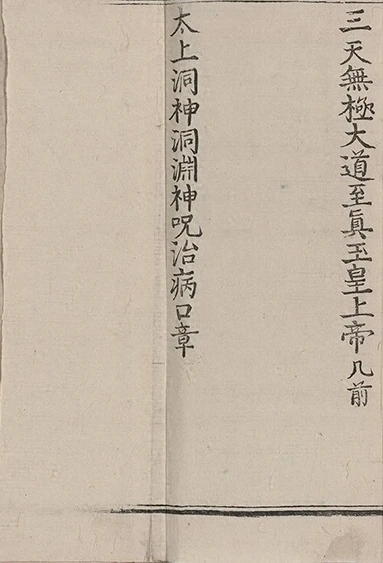 三天無極大道至眞玉皇上帝几前
太上洞神洞淵神呪治病口章